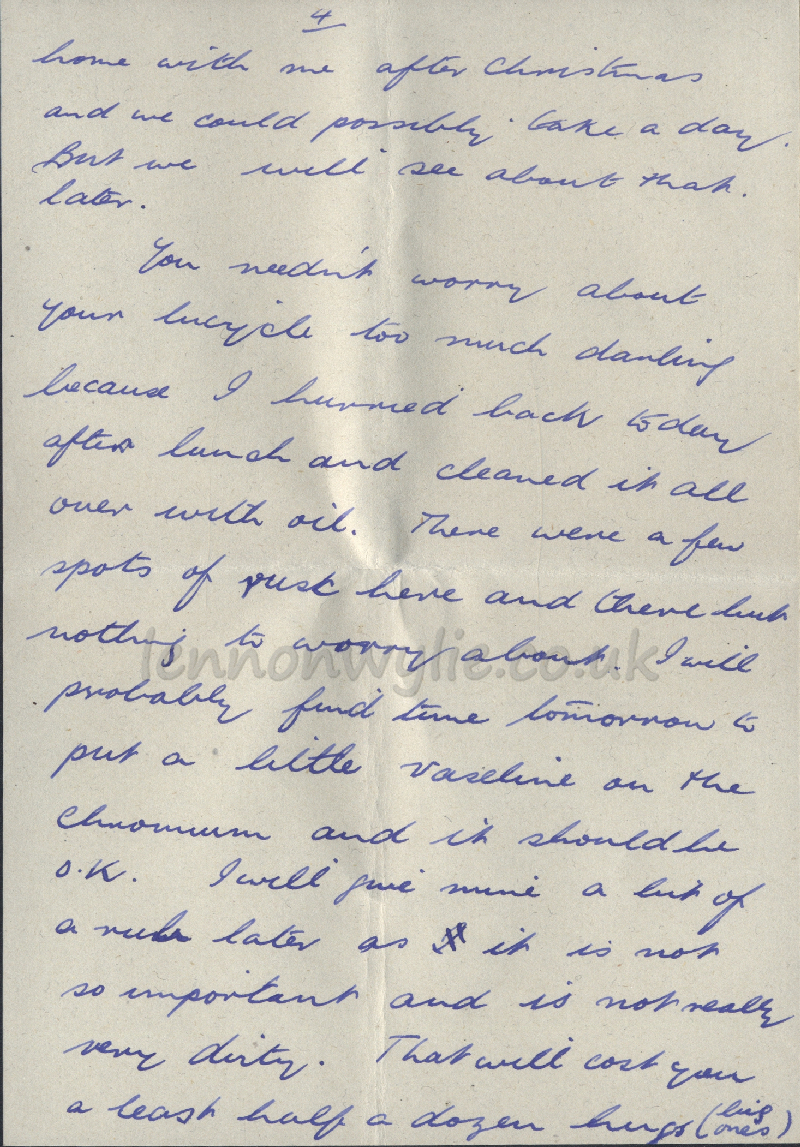 4
home with me after Christmas
and we could possibly take a day.
But we will see about that.
later.
You needn't worry about
your bicycle too much darling
because I hurried back today
after lunch and cleaned it all
over with oil. There were a few
spots of rust here and there but
nothing to worry about. I will
probably find time tomorrow to
put a little vaseline on the
chromium and it should be
O.K. I will give mine a bit of
a rub later as it is not
so important and is not really
very dirty. That will cost you
a least half a dozen hugs (big ones)
lennonwylie.co.uk